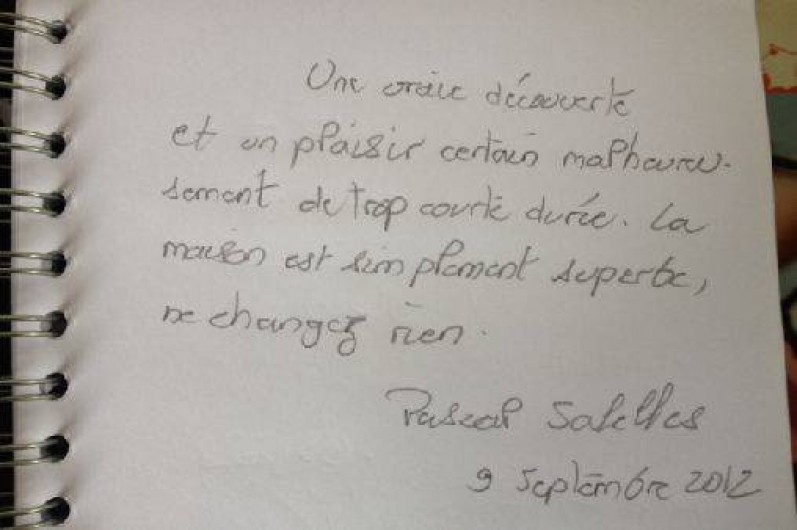 Une vraie découverte
et un plaisir certain malheureu-
sement de trop courte durée. La
maison est simplement superbe,
ne changez rien.
Pascal
9 Septembre 2012